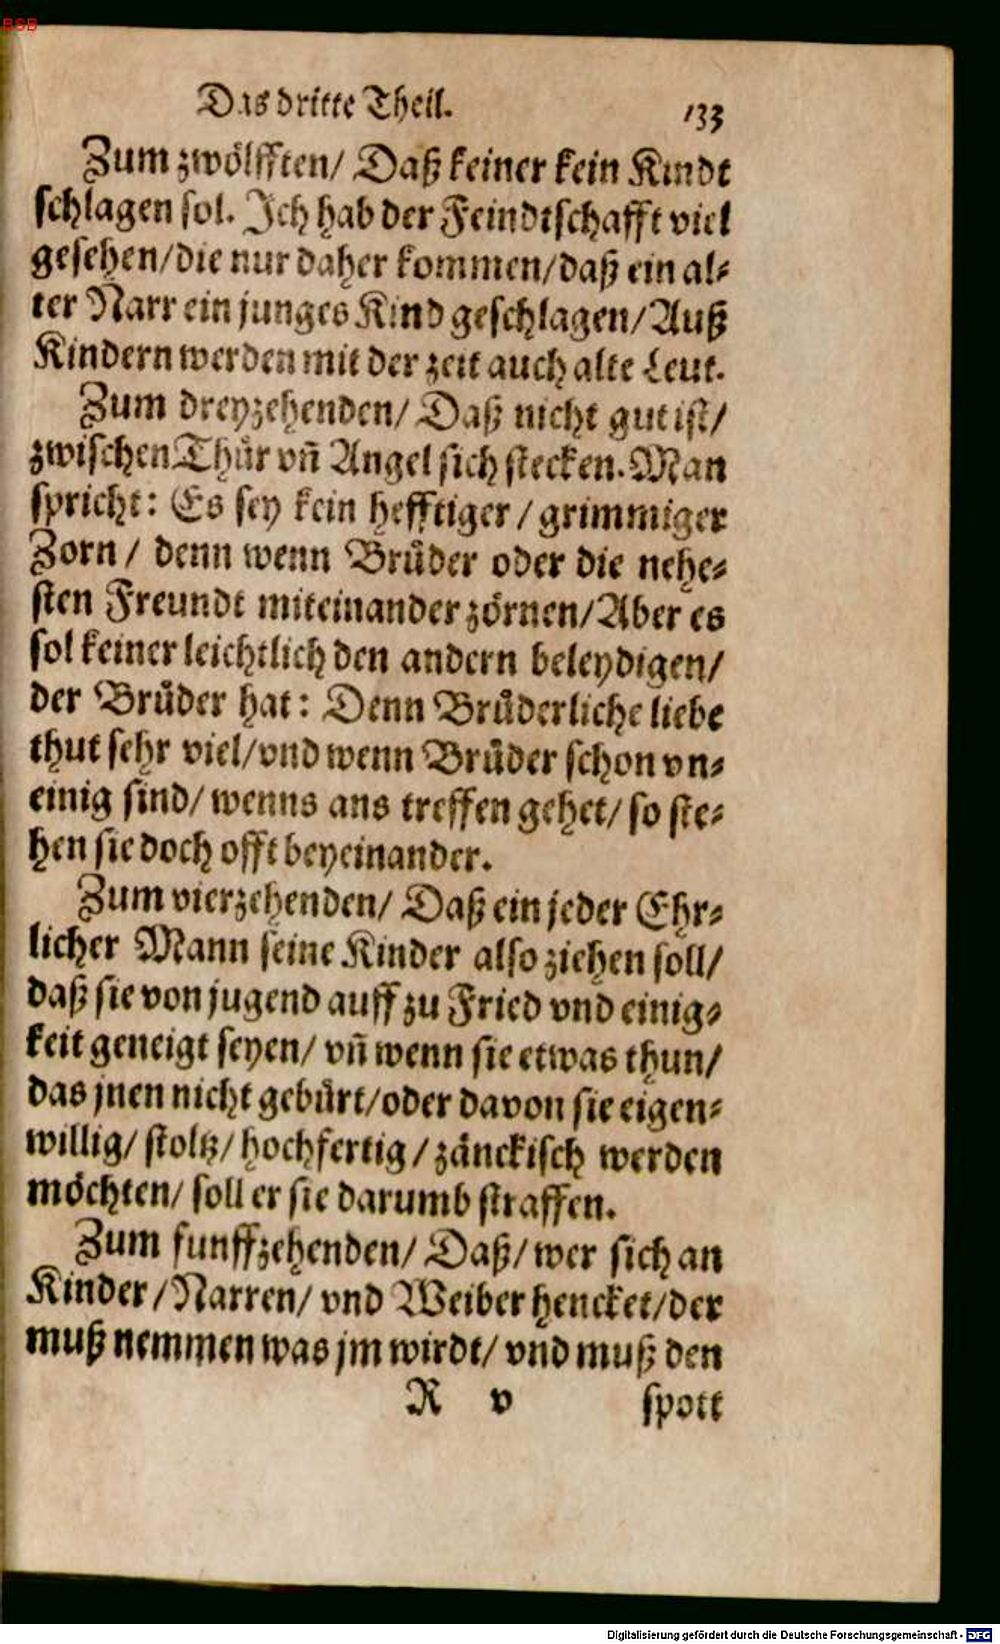 BSB
Das dritte Theil. 133
Zum zwölfften/ Daß keiner kein Kindt
schlagen sol. Ich hab der Feindtschafft viel
gesehen/die nur daher kommen/daß ein al⸗
ter Narr ein junges Kind geschlagen/Auß
Kindern werden mit der zeit auch alte Leut.
Zum dreyzehenden/ Daß nicht gut ist/
zwischen Thür vñ Angel sich stecken. Man
spricht: Es sey kein hefftiger / grimmiger
Zorn / denn wenn Brüder oder die nehe⸗
sten Freundt miteinander zörnen/Aber es
sol keiner leichtlich den andern beleydigen/
der Brüder hat: Denn Brüderliche liebe
thut sehr viel/vnd wenn Brüder schon vn⸗
einig sind/ wenns ans treffen gehet/ so ste⸗
hen sie doch offt beyeinander.
Zum vierzehenden/ Daß ein jeder Ehr⸗
licher Mann seine Kinder also ziehen soll/
daß sie von jugend auff zu Fried vnd einig⸗
keit geneigt seyen/ vñ wenn sie etwas thun/
das jnen nicht gebürt/oder davon sie eigen⸗
willig/ stoltz/ hochfertig / zänckisch werden
möchten/ soll er sie darumb straffen.
Zum funffzehenden/ Daß/ wer sich an
Kinder /Narren/ vnd Weiber hencket/der
muß nemmen was jm wirdt/ vnd muß den
R v spott
Digitalisierung gefördert durch die Deutsche Forschungsgemeinschaft - DFG